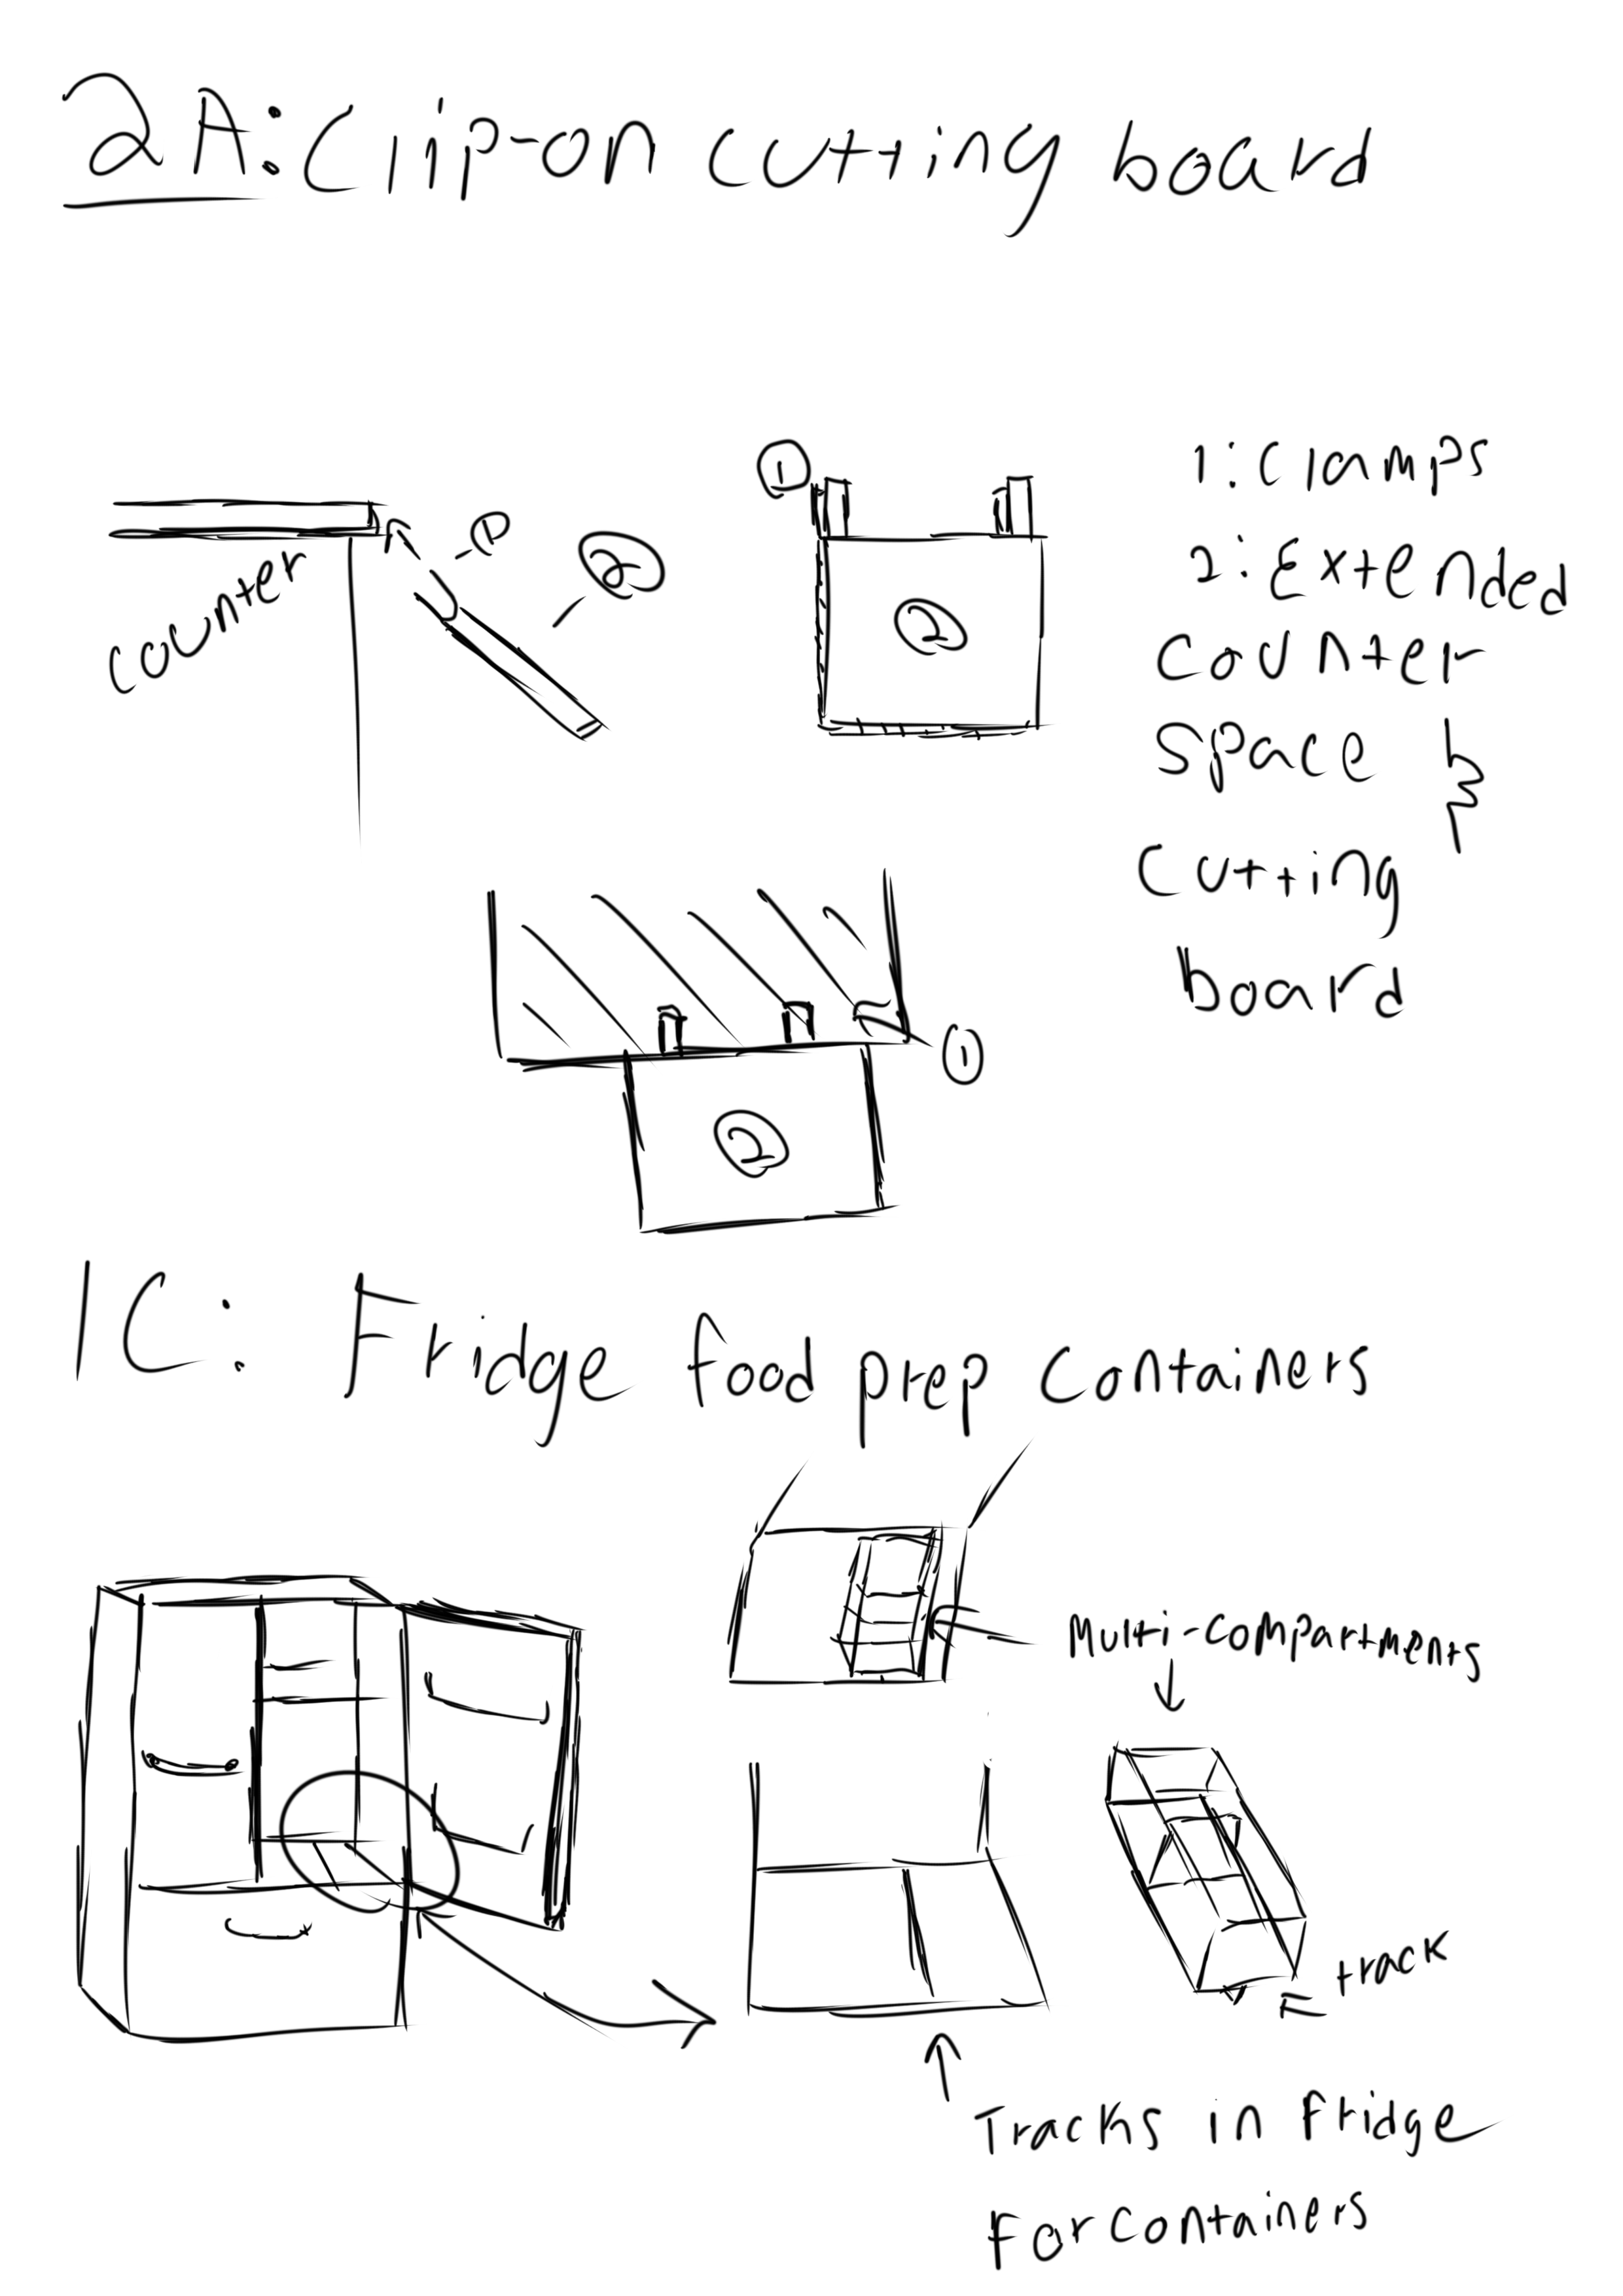 2A: Clip-on cutting board
1
1
2
2
counter
1: Clamps
2: Extended
counter
space &
cutting
board
1
2
1C: Fridge food prep containers
Multi-compartments
track
Tracks in fridge
for containers